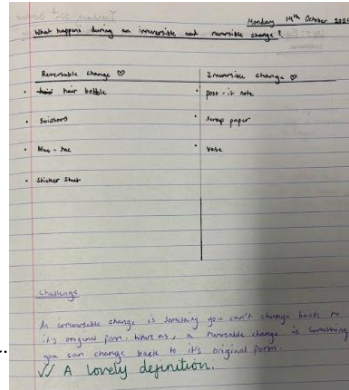 Monday 14th October 2024
What happens during an irreversible and reversible change?
Reversable change ♡
Irreversible change ♡
• hair bobble
• post-it note
• Scissors
• Scrap paper
• Blue-tac
• Vase
• Sticker sheet
Challenge
An irreversable change is something you can't change back to
it's original form. Whereas, a reversable change is something
you can change back to it's original form.
A lovely definition.
..